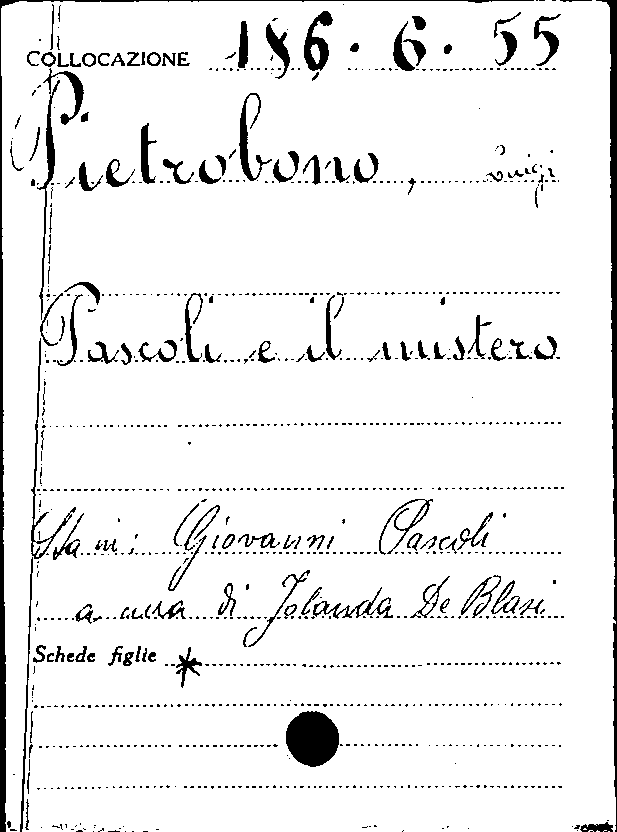 COLLOCAZIONE 186.6.55
Pietrobono, Luigi
Pascoli e il mistero
Sta in: Giovanni Pascoli
a cura di Jolanda De Blasi
Schede figlie *